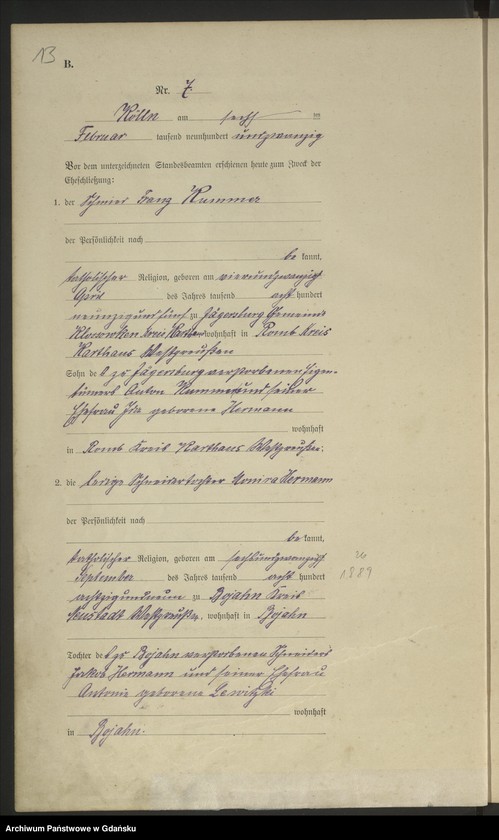 13
B.
Nr. 7
Kölln am sechs ten
Februar tausend neunhundert undzwanzig
Vor dem unterzeichneten Standesbeamten erschienen heute zum Zweck der
Eheschließung:
1. der Schmied Franz Kummer
der Persönlichkeit nach
be kannt,
katholischer Religion, geboren am vierundzwanzigst
April des Jahres tausend acht hundert
neunzigundfünf zu Jägersburg Gemeind
Klossowken Kreis Karthaus wohnhaft in Romb Kreis
Karthaus Westpreußen
Sohn des zu Jägersburg verstorbenen Eigen-
tümers Anton Kummer und seiner
Ehefrau Ida geborene Hermann
wohnhaft
in Romb Kreis Karthaus Westpreußen.
2. die ledige Schneidertochter Monika Hermann
der Persönlichkeit nach
be kannt,
katholischer Religion, geboren am sechsundzwanzigst
September des Jahres tausend acht hundert
achtzigundneun zu Bojahn Kreis
Neustadt Westpreußen, wohnhaft in Bojahn
26
1889
Tochter des zu Bojahn verstorbenen Schneiders
Jakob Hermann und seiner Ehefrau
Antonie geborene Lewitzki
wohnhaft
in Bojahn.
Archiwum Państwowe w Gdańsku